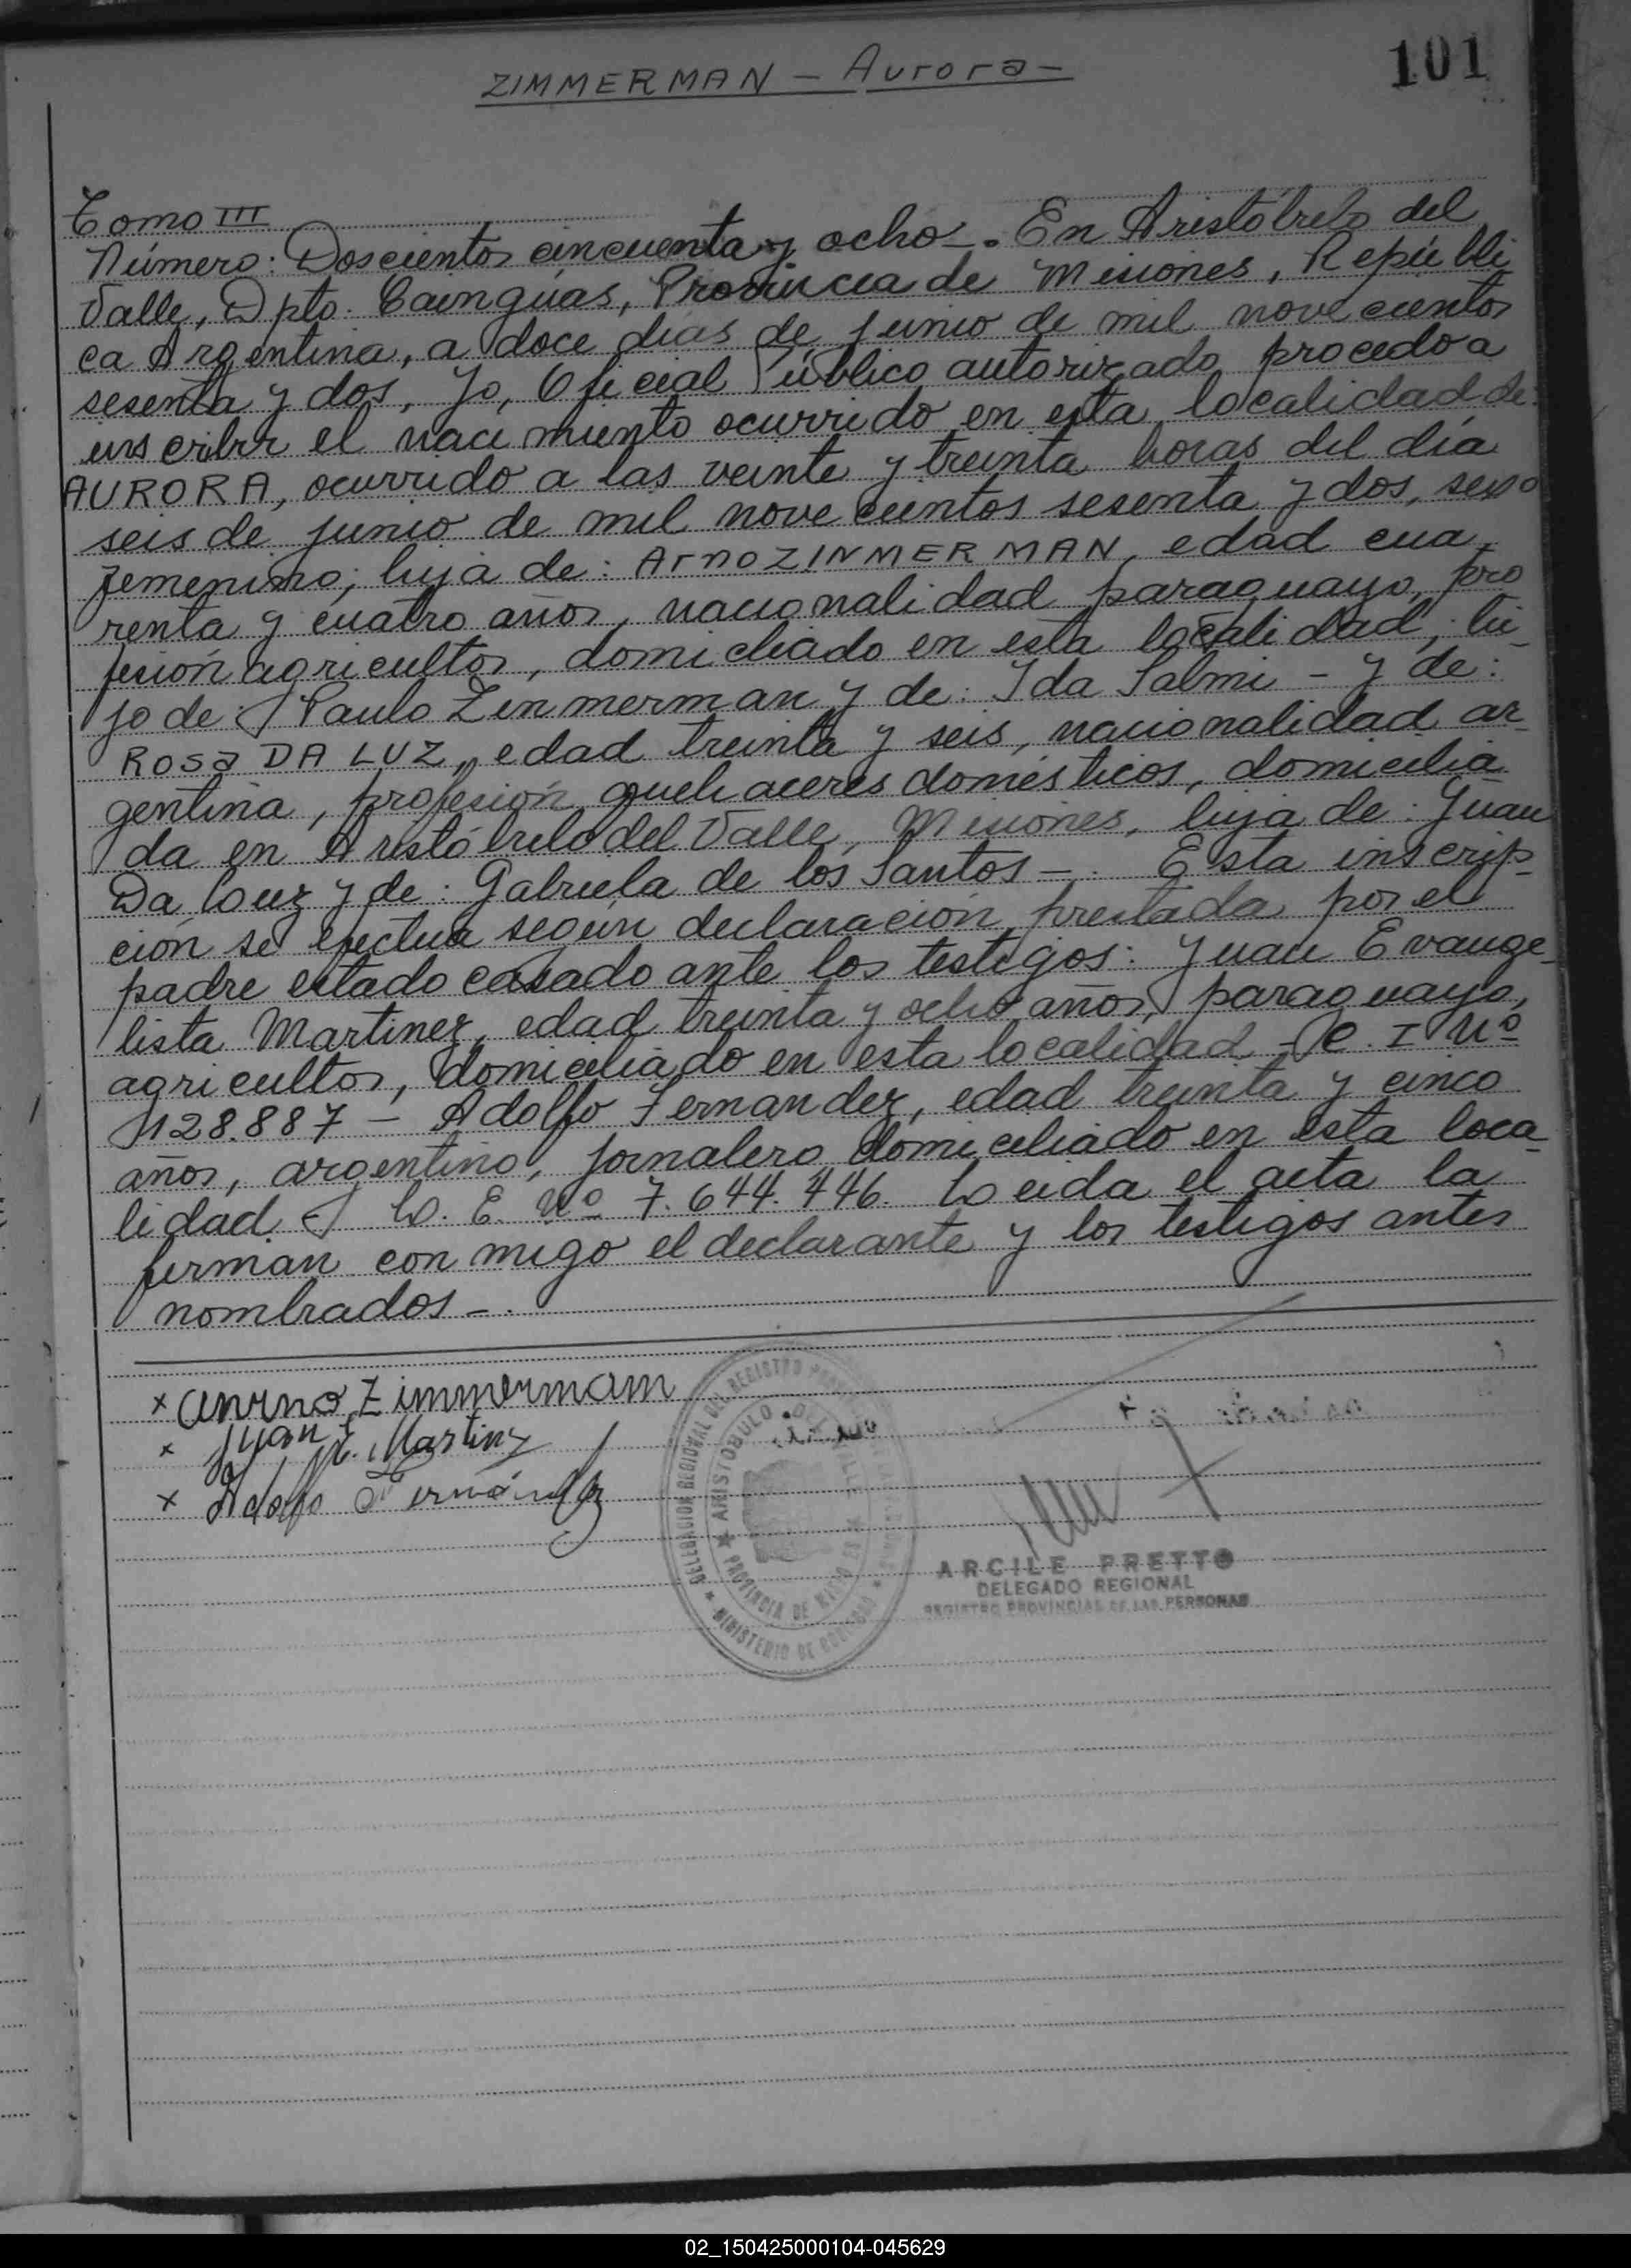 ZIMMERMAN - Aurora -
101
Tomo III
Número: Doscientos cincuenta y ocho -. En Aristóbulo del
Valle, Dpto. Cainguás, Provincia de Misiones, Repúbli
ca Argentina, a doce días de junio de mil novecientos
sesenta y dos, Yo, Oficial Público autorizado procedo a
inscribir el nacimiento ocurrido en esta localidad de:
AURORA, ocurrido a las veinte y treinta horas del día
seis de junio de mil novecientos sesenta y dos, sexo
femenino; hija de: Arno ZINMERMAN, edad cua
renta y cuatro años, nacionalidad paraguayo, pro
fesión agricultor, domiciliado en esta localidad, hi
jo de: Paulo Zinmerman y de: Ida Salmi - y de:
ROSa DA LUZ, edad treinta y seis, nacionalidad ar
gentina, profesión quehaceres domésticos, domicilia
da en Aristóbulo del Valle, Misiones, hija de: Juan
Da Luz y de: Gabriela de los Santos -. Esta inscrip
ción se efectua según declaración prestada por el
padre estado casado ante los testigos: Juan Evange
lista Martinez, edad treinta y ocho años, paraguayo,
agricultor, domiciliado en esta localidad - C. I Nº
128.887 - Adolfo Fernandez, edad treinta y cinco
años, argentino, jornalero domiciliado en esta loca
lidad L. E. Nº 7.644.446. Leida el acta la
firman conmigo el declarante y los testigos antes
nombrados -.
x Anrno Zimmermam
x Juan E. Martinz
x Adolfo Fernández
DELEGACION REGIONAL DEL REGISTRO
ARISTOBULO DEL VALLE
PROVINCIA DE MISIONES
MINISTERIO DE GOBIERNO
ARCILE PRETTO
DELEGADO REGIONAL
REGISTRO PROVINCIAL DE LAS PERSONAS
02_150425000104-045629